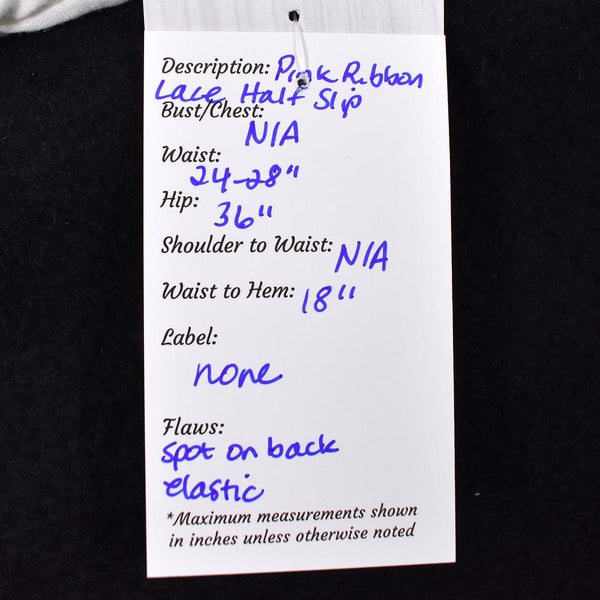 Description: Pink Ribbon
Lace Half Slip
Bust/Chest:
N/A
Waist:
24-28"
Hip:
36"
Shoulder to Waist:
N/A
Waist to Hem: 18"
Label:
none
Flaws:
spot on back
elastic
*Maximum measurements shown
in inches unless otherwise noted